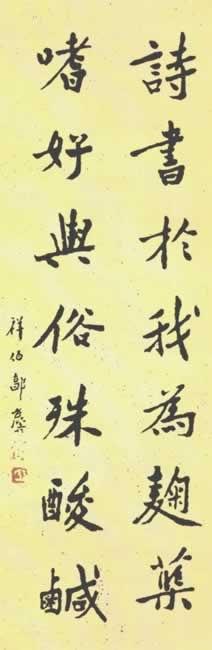 詩書於我為麴蘖
嗜好與俗殊酸鹹
祥伯郭麐